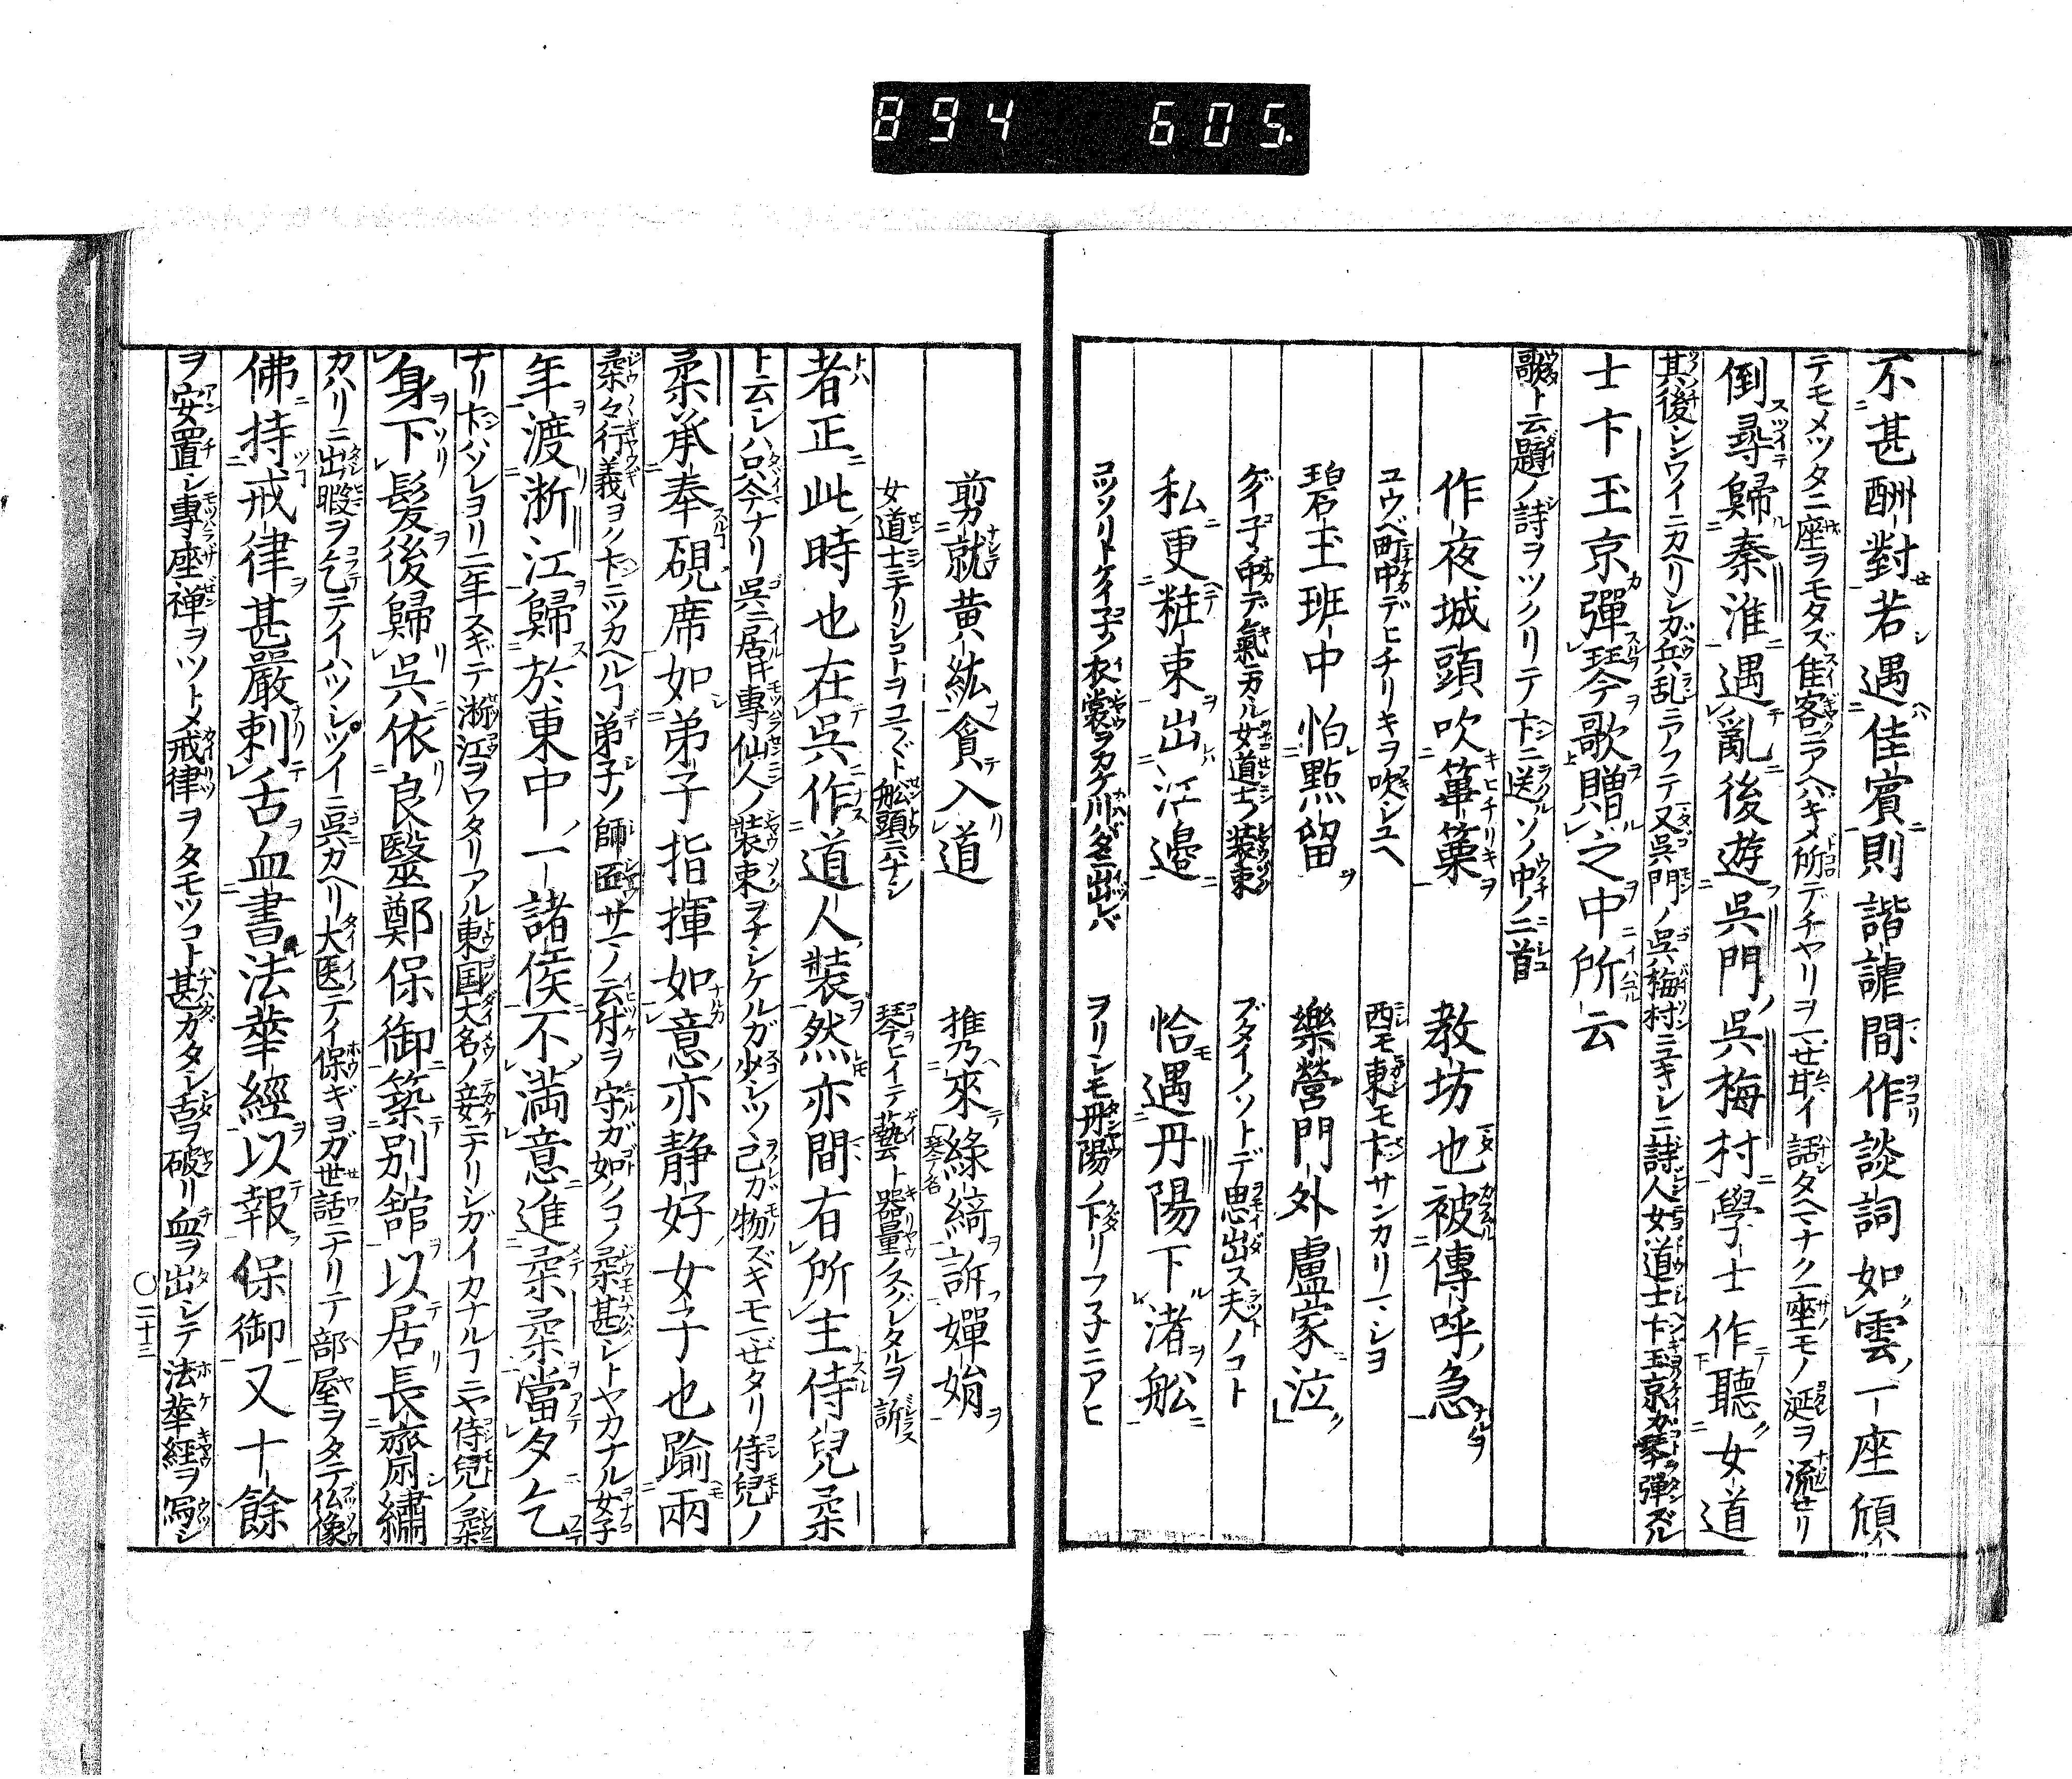 894 605
不甚酬對若遇佳賓則諧謔間作談詞如雲一座傾
テモメツタニ座ヲモタズ佳客ニアヘバキメ所デチヤリヲマゼ耳イ話タヘマナク一座モノ涎ヲ流セリ
倒尋歸秦淮遇亂後遊呉門呉梅村學士作聽女道
其後シンワイニカヘリシガ兵乱ニアフテ又呉門ノ呉梅村ニユキシニ詩人女道士卞玉京ガ琴ヲ彈ズル
士卞玉京彈琴歌贈之中所云
歌ト云題ノ詩ヲツクリテ卞ニ送ルソノ中ノ三首
作夜城頭吹篳篥　教坊也被傳呼急
ユウベ町中デヒチリキヲ吹シユヘ　西モ東モ卞サンカリマシヨ
碧玉班中怕點留　樂營門外盧家泣
ゲイ子ノ中デ氣ニカヽル女道士ノ装束　ブタイノソトデ思出ス夫ノコト
私更粧束出江邉　恰遇丹陽下渚舩
コツソリトケイ子ノ衣裳ヲカケ川バタニ出レバ　ヲリシモ丹陽ノ下リフ子ニアヒ
剪就黄絁貪入道　携來綠綺訴嬋娟
女道士ニナリシコトヲコマ〴〵ト舩頭ニハナシ　琴ヒイテ藝ト器量ノスグレタルヲ訴
者正此時也在呉作道人装然亦間有所主侍兒柔
ト云シハ只今ナリ呉ニ居トキ専仙人ノ装束ヲナシケルガ少シツヽ己ガ物ズキモマゼタリ侍兒ノ
柔承奉硯席如弟子指揮如意亦静好女子也踰兩
柔々行義ヨク卞ニツカヘルコト弟子ノ師匠サマノ云付ヲ守ルガ如クコノ柔甚シトヤカナル女子
年渡浙江歸於東中一諸侯不満意進柔柔當夕乞
ナリ卞ハソレヨリ二年スギテ浙江ヲワタリアル東国大名ノ妾ニナリシガイカナルコトニヤ侍兒ノ柔
身下髪後歸呉依良醫鄭保御築別舘以居長齋繡
カハリニ出シ暇ヲ乞テイハツシツイニ呉ニカヘリ大医テイ保ギヨガ世話ニナリテ部屋ヲタテ仏像
佛持戒律甚嚴刺舌血書法華經以報保御又十餘
ヲ安置シ專座禅ヲツトメ戒律ヲタモツコト甚カタシ舌ヲ破リ血ヲ出シテ法華經ヲ写シ
〇二十三